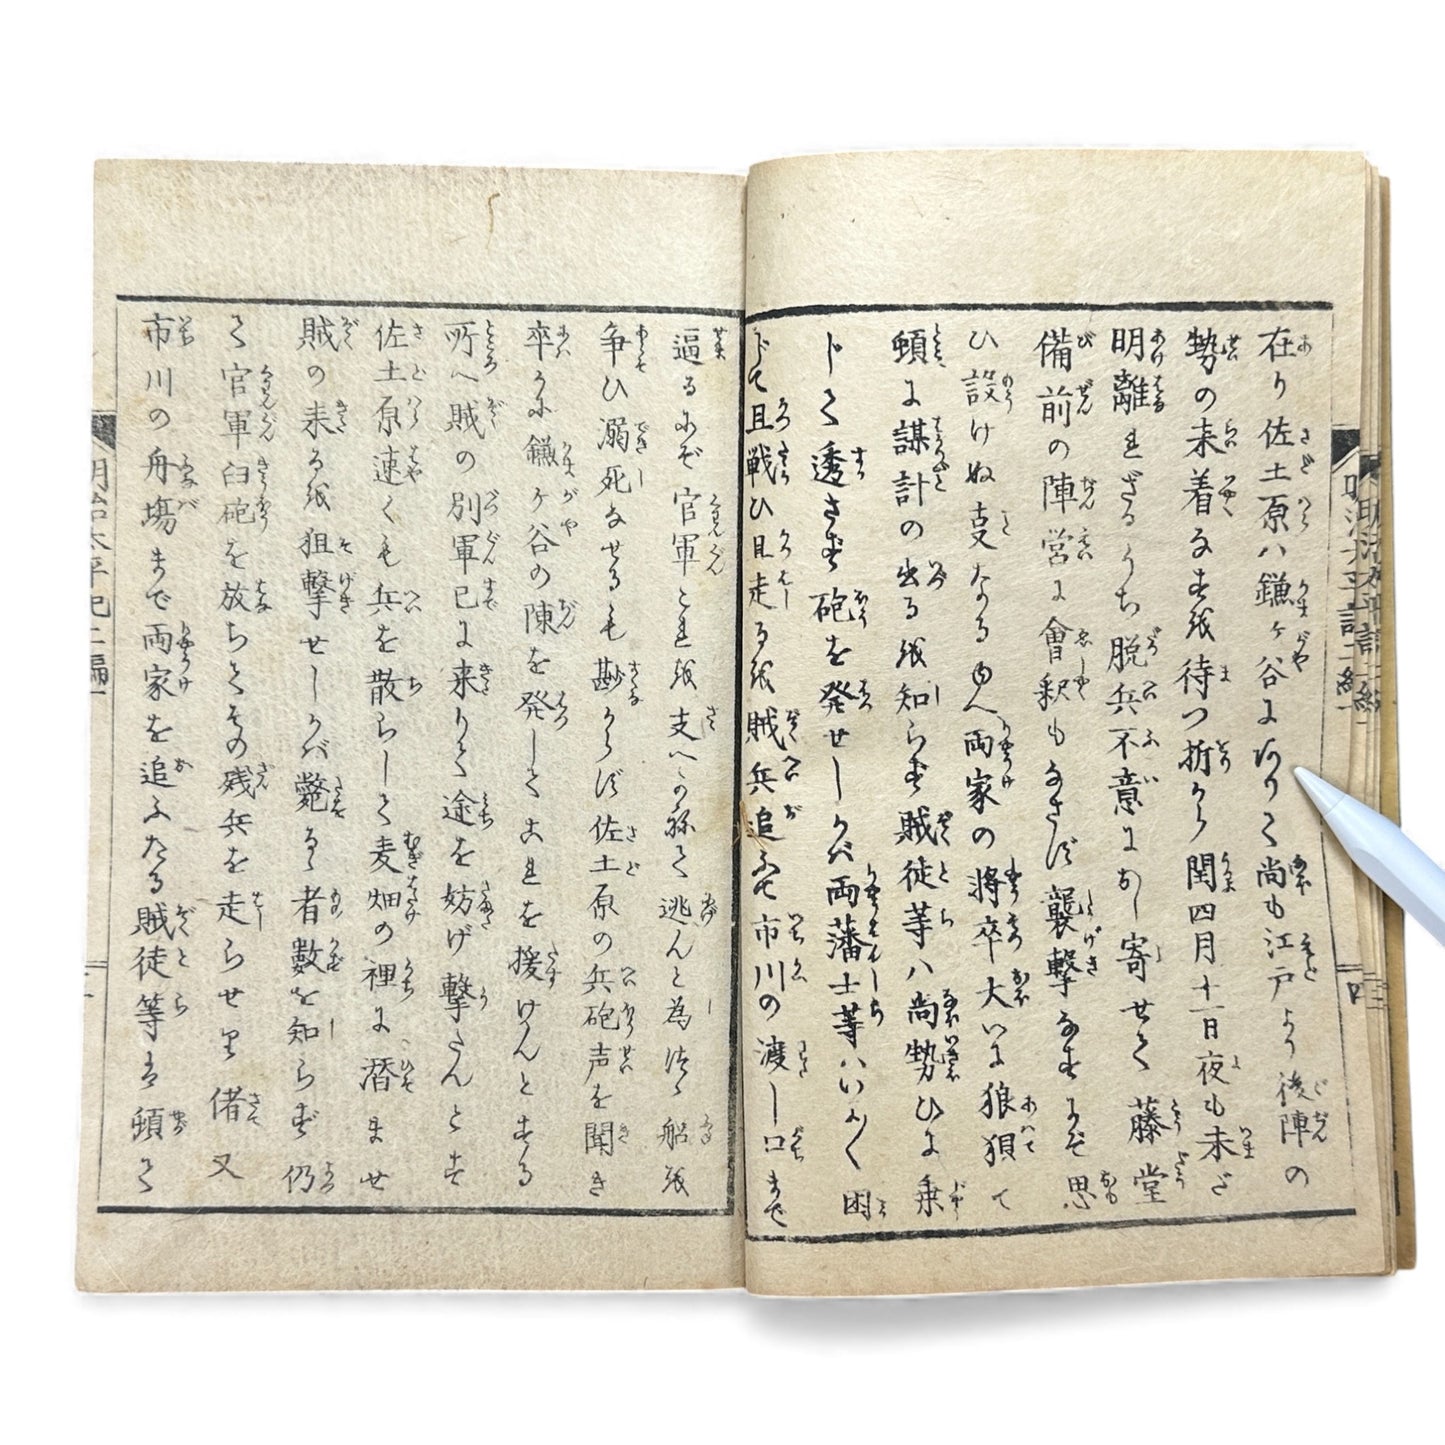 在り佐土原ハ鎌ヶ谷にありて尚も江戸より後陣の
勢の来着なすを待つ折から閏四月十一日夜も未ざ
明離れざるうち脱兵不意におし寄せて藤堂
備前の陣営に會釈もなさず襲撃なすにぞ思
ひ設けぬ支なるゆへ両家の将卒大いに狼狽て
頓に謀計の出るを知らず賊徒等ハ尚勢ひに乗
じて透さず砲を発せしかバ両藩士等ハいよ〱困
じて且戦ひ且走るを賊兵追ふて市川の渡し口まで
逼るにぞ官軍これを支へかねて逃んと為つゝ船を
争ひ溺死なせるも尠からず佐土原の兵砲声を聞き
卒かに鎌ヶ谷の陳を発してこれを援けんとする
所へ賊の別軍已に来りて途を妨げ撃たんとす
佐土原速くも兵を散らして麦畑の裡に潜ませ
賊の来るを狙撃せしかバ斃るゝ者数を知らず仍
て官軍臼砲を放ちてその残兵を走らせり偖又
市川の舟場まで両家を追ふたる賊徒等は頓て
明治太平記二編
四